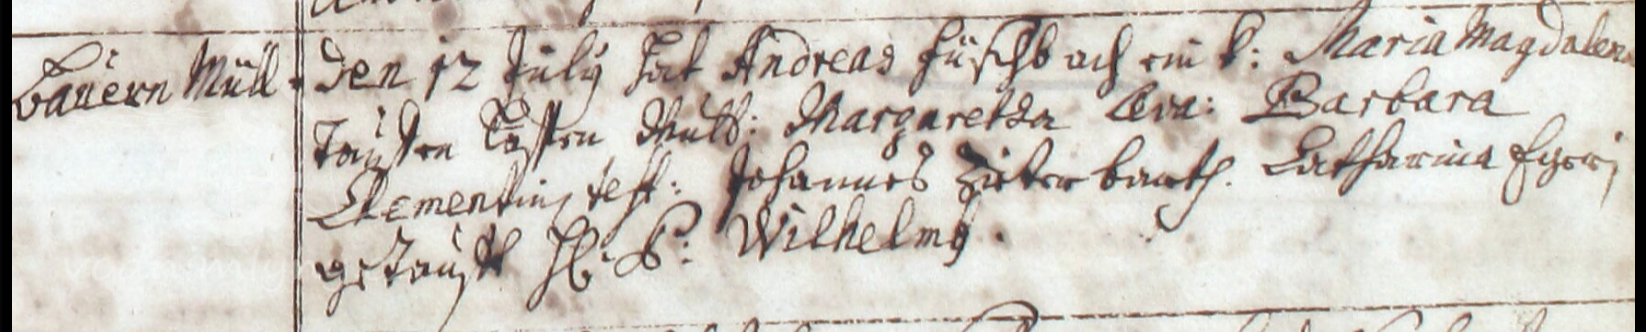 Bauern Müll
den 12 July hat Andreas Füschbach ein k: Maria Magdalena
tauffen lassen Mutt: Margaretha leva: Barbara
Clementin test: Johannes Zieterbarth. Catharina
getauft H: P: Wilhelmy.